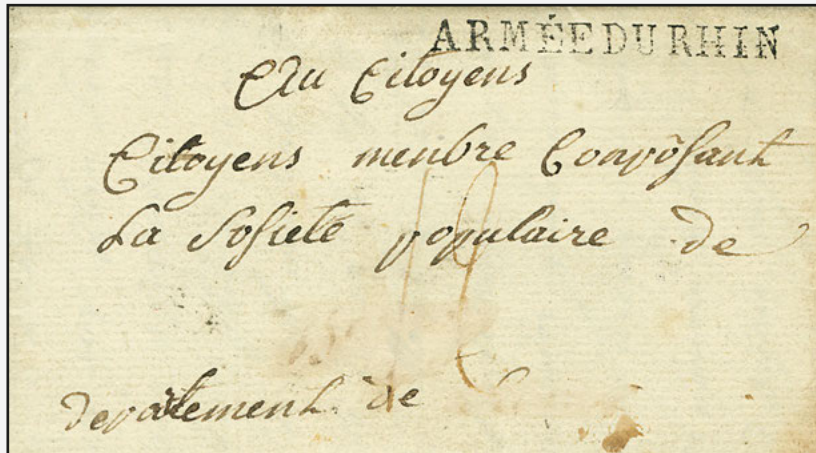 ARMÉE DU RHIN
Au Citoyens
Citoyens menbre Conpôsant
La Sosieté populaire de
depâtement de